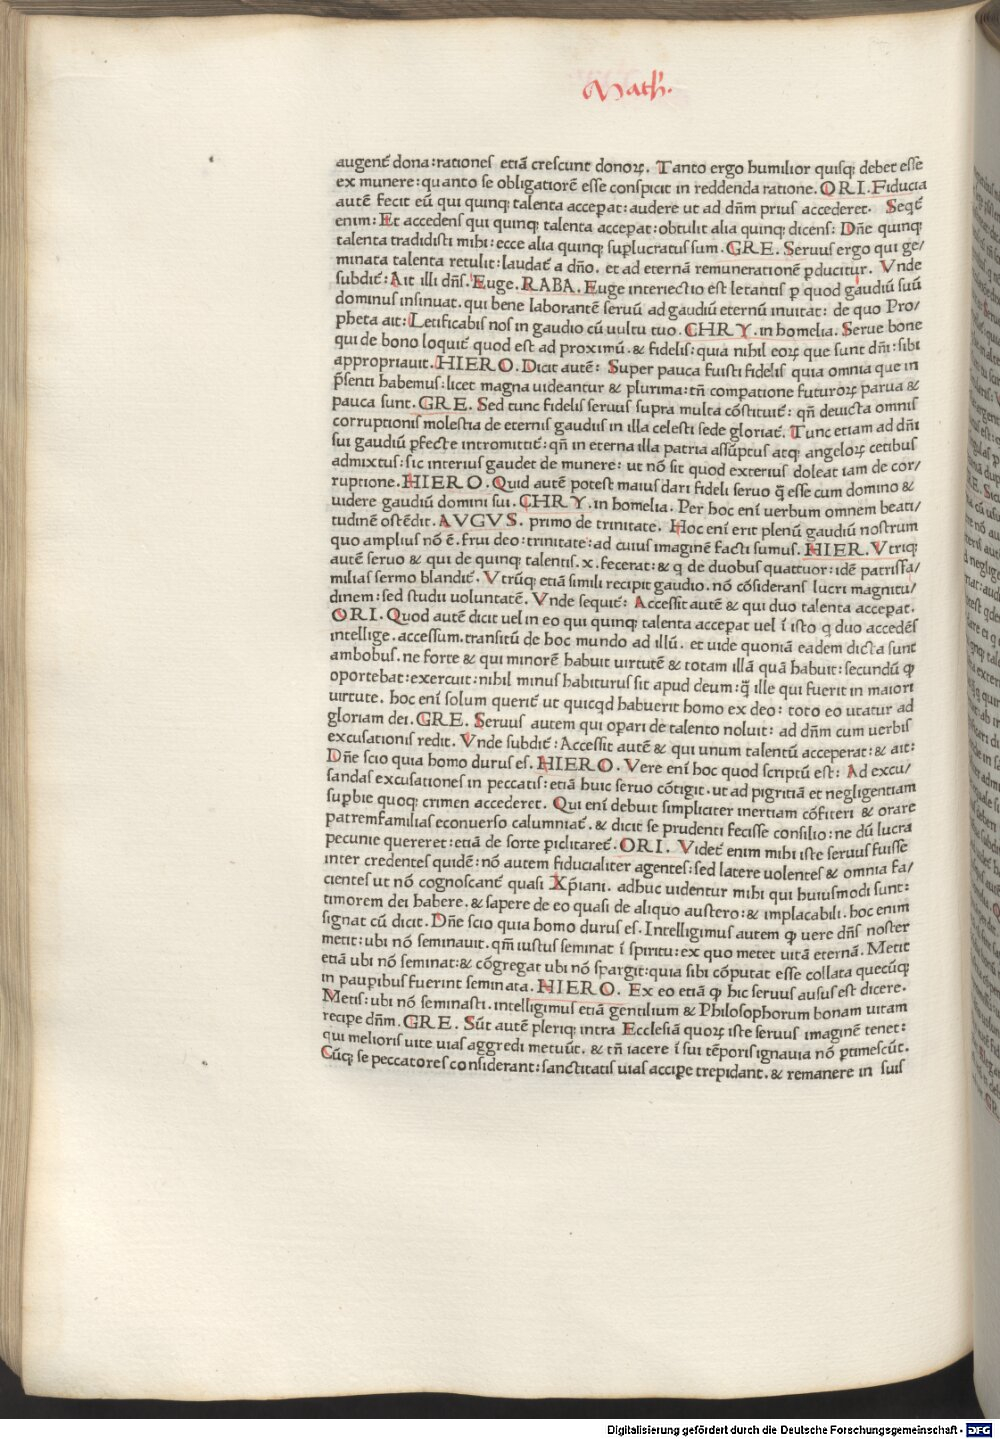 Math.
augent̄ dona:rationeſ etiā creſcunt donoꝝ. Tanto ergo humilior quiſqꝫ debet eſſe
ex munere:quanto ſe obligatiorē eſſe conſpicit in reddenda ratione. ORI. Fiducia
autē fecit eū qui quinqꝫ talenta accepat:audere ut ad dn̄m prius accederet. Seqt̄
enim: Et accedenſ qui quinqꝫ talenta accepat:obtulit alia quinqꝫ dicenſ: Dn̄e quinqꝫ
talenta tradidiſti mihi:ecce alia quinqꝫ suꝑlucratus sum. GRE. Seruuſ ergo qui ge/
minata talenta retulit:laudat̄ a dn̄o. et ad eternā remunerationē ꝑducitur. Vnde
ſubdit̄: Ait illi dn̄ſ. Euge. RABA. Euge interiectio eſt letantiſ ꝑ quod gaudiū ſuū
dominus inſinuat. qui bene laborantē ſeruū ad gaudiū eternū inuitat: de quo Pro/
pheta ait: Letificabiſ noſ in gaudio cū uultu tuo. CHRY. in homelia. Serue bone
qui de bono loquit̄ quod eſt ad proximū. & fideliſ: quia nihil eoꝝ que ſunt dn̄i: ſibi
appropriauit. HIERO. Dicit autē: Super pauca fuiſti fideliſ quia omnia que in
p̄ſenti habemus: licet magna uideantur & plurima: tn̄ compatione futuroꝝ parua &
pauca ſunt. GRE. Sed tunc fideliſ ſeruuſ ſupra multa cōſtituit̄: qn̄ deuicta omniſ
corruptioniſ moleſtia de eterniſ gaudiiſ in illa celeſti ſede gloriat̄. Tunc etiam ad dn̄i
ſui gaudiū ꝑfecte intromittit̄: qn̄ in eterna illa patria aſſūptus atqꝫ angeloꝝ cetibuſ
admixtus: ſic interiuſ gaudet de munere: ut nō ſit quod exterius doleat iam de cor/
ruptione. HIERO. Quid autē poteſt maius dari fideli ſeruo q̄ eſſe cum domino &
uidere gaudiū domini ſui. CHRY. in homelia. Per hoc eni uerbum omnem beati/
tudinē oſtēdit. AVGVS. primo de trinitate. Hoc eni erit plenū gaudiū noſtrum
quo ampliuſ nō ē. frui deo: trinitate: ad cuiuſ imaginē facti ſumus. HIER. Vtriqꝫ
autē ſeruo & qui de quinqꝫ talentiſ .x. fecerat: & q de duobuſ quattuor: idē patriſfa/
miliaſ ſermo blandit̄. Vtrūqꝫ etiā ſimili recipit gaudio. nō cōſideranſ lucri magnitu/
dinem: ſed ſtudii uoluntatē. Vnde ſequit̄: Acceſſit autē & qui duo talenta accepat.
ORI. Quod autē dicit uel in eo qui quinqꝫ talenta accepat uel ī iſto q duo accedēſ
intellige. acceſſum. tranſitū de hoc mundo ad illū. et uide quoniā eadem dicta ſunt
ambobuſ. ne forte & qui minorē habuit uirtutē & totam illā quā habuit: ſecundū ꝙ
oportebat: exercuit: nihil minuſ habiturus ſit apud deum: q̄ ille qui fuerit in maiori
uirtute. hoc eni ſolum querit̄ ut quicqd habuerit homo ex deo: toto eo utatur ad
gloriam dei. GRE. Seruuſ autem qui oꝑari de talento noluit: ad dn̄m cum uerbiſ
excuſationiſ redit. Vnde ſubdit̄: Acceſſit autē & qui unum talentū acceperat: & ait:
Dn̄e ſcio quia homo duruſ eſ. HIERO. Vere eni hoc quod ſcriptū eſt: Ad excu/
ſandaſ excuſationeſ in peccatiſ: etiā huic ſeruo cōtigit. ut ad pigritiā et negligentiam
ſuꝑbie quoqꝫ crimen accederet. Qui eni debuit ſimpliciter inertiam cōfiteri & orare
patremfamiliaſ econuerſo calumniat̄. & dicit ſe prudenti feciſſe conſilio: ne dū lucra
pecunie quereret: etiā de ſorte ꝑiclitaret̄. ORI. Videt̄ enim mihi iſte ſeruuſ fuiſſe
inter credenteſ quidē: nō autem fiducialiter agenteſ: ſed latere uolenteſ & omnia fa/
cienteſ ut nō cognoſcant̄ quaſi Xp̄iani. adhuc uidentur mihi qui huiuſmodi ſunt:
timorem dei habere. & ſapere de eo quaſi de aliquo auſtero: & implacabili. hoc enim
ſignat cū dicit. Dn̄e ſcio quia homo duruſ eſ. Intelligimus autem ꝙ uere dn̄ſ noſter
metit: ubi nō ſeminauit. qm̄ iuſtuſ ſeminat ī ſpiritu: ex quo metet uitā eternā. Metit
etiā ubi nō ſeminat: & cōgregat ubi nō ſpargit: quia ſibi cōputat eſſe collata quecūqꝫ
in pauꝑibuſ fuerint ſeminata. HIERO. Ex eo etiā ꝙ hic ſeruuſ auſuſ eſt dicere.
Metiſ: ubi nō ſeminaſti. intelligimuſ etiā gentilium & Philoſophorum bonam uitam
recipe dn̄m. GRE. Sūt autē pleriqꝫ intra Eccleſiā quoꝝ iſte ſeruuſ imaginē tenet:
qui melioriſ uite uiaſ aggredi metuūt. & tn̄ iacere ī ſui tēporiſ ignauia nō ꝑtimeſcūt.
Cūqꝫ ſe peccatoreſ conſiderant: ſanctitatiſ uiaſ acciꝑe trepidant. & remanere in ſuiſ
Digitalisierung gefördert durch die Deutsche Forschungsgemeinschaft - DFG